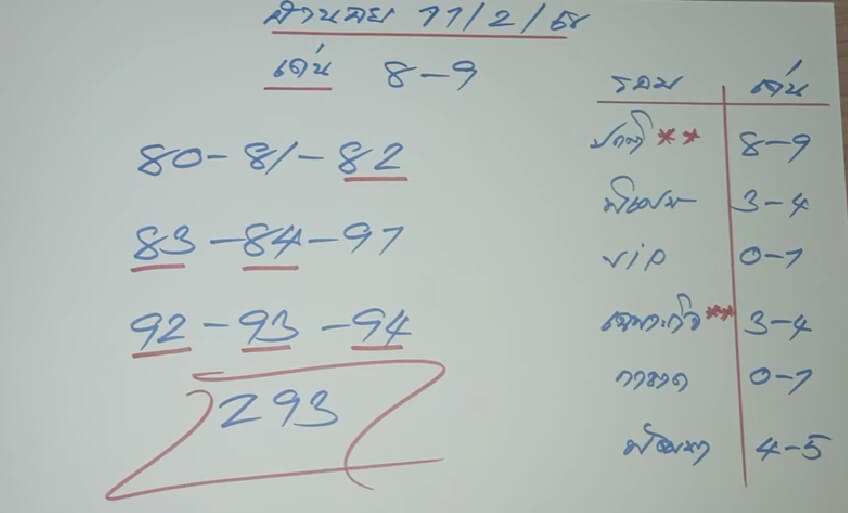 ฮานอย 11/2/68
เด่น 8-9
80-81-82
83-84-97
92-93-94
293
รอบ เด่น
ปกติ ** 8-9
พิเศษ 3-4
VIP 0-1
เฉพาะกิจ ** 3-4
กาชาด 0-1
พัฒนา 4-5